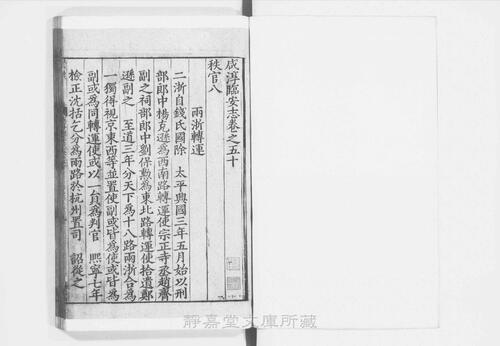 咸淳臨安志卷之五十
秩官八
兩浙轉運
二浙自錢氏國除 太平興國三年五月始以刑
部郎中楊克遜爲西南路轉運使宗正寺丞趙齊
副之祠部郎中劉保勲爲東北路轉運使拾遺鄭
遜副之 至道三年分天下爲十八路兩浙合爲
一獨得視京東西等並置使副或皆爲使或皆爲
副或爲同轉運使或以一員爲判官 熈寧七年
檢正沈括乞分爲兩路於杭州置司 詔從之
靜嘉堂文庫所藏